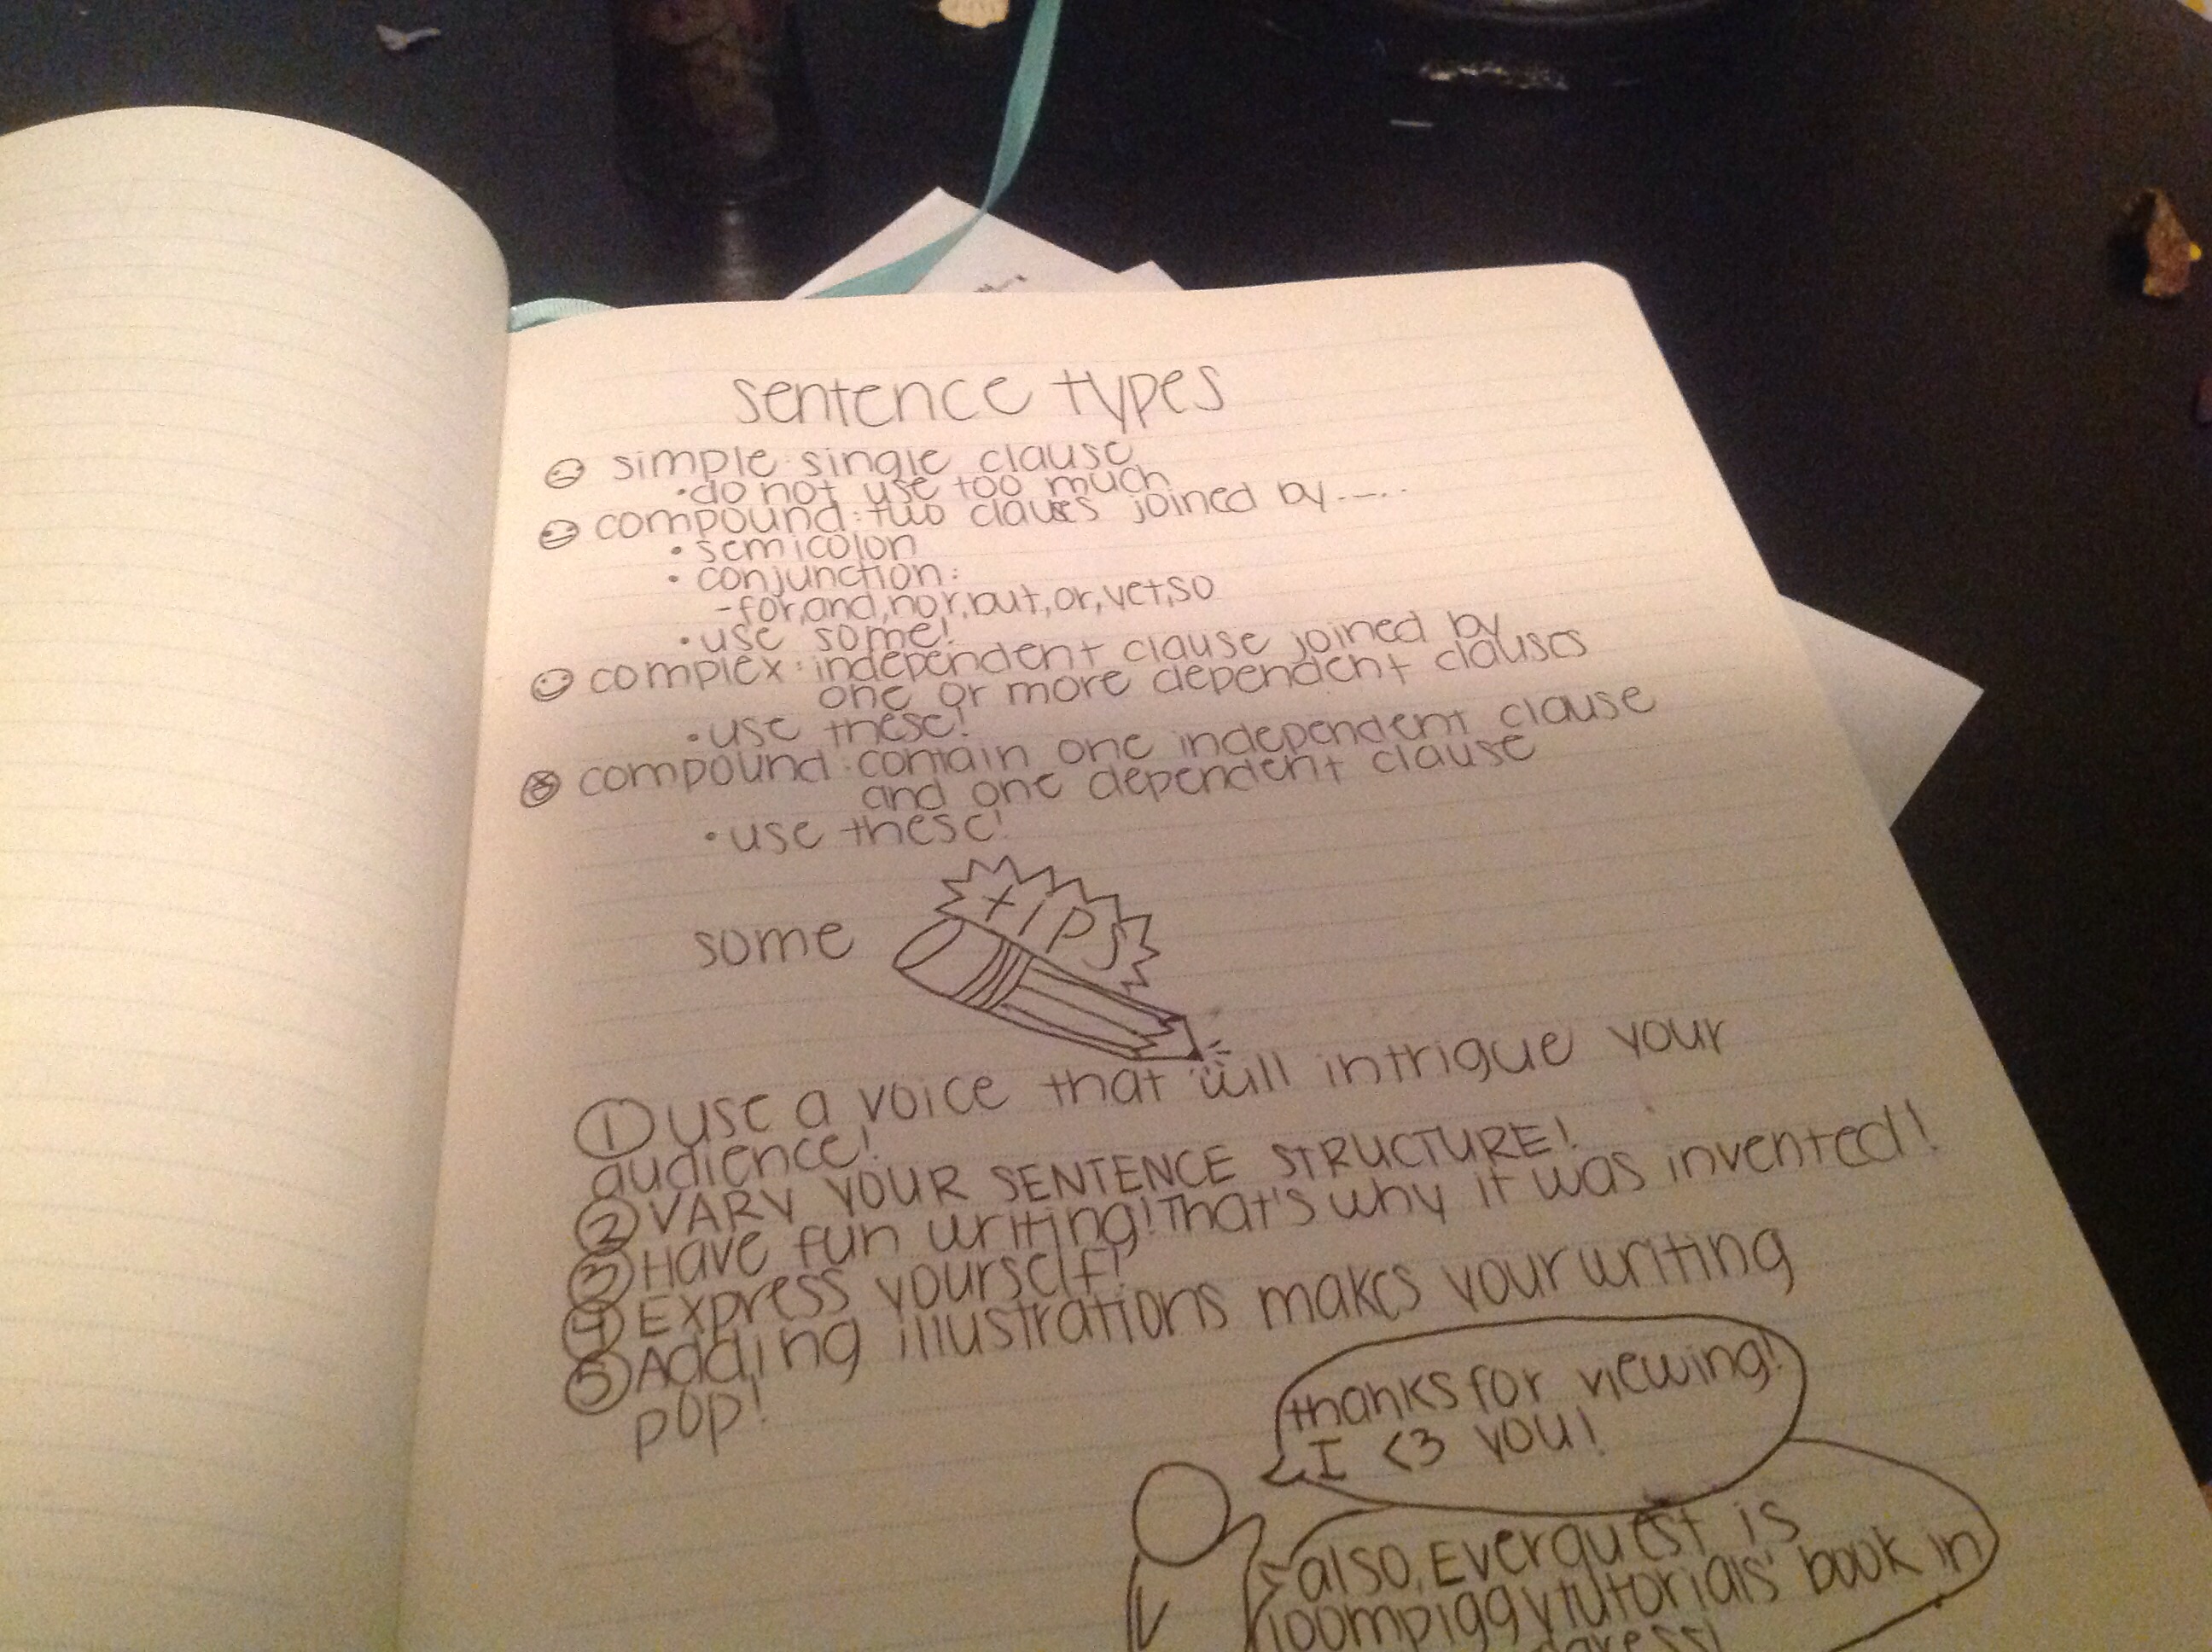 sentence types
simple: single clause
• do not use too much
compound: two clauses joined by.....
• semicolon
• conjunction:
- for, and, nor, but, or, yet, so
• use some!
complex: independent clause joined by
one or more dependent clauses
• use these!
compound: contain one independent clause
and one dependent clause
• use these!
some tips
① use a voice that will intrigue your
audience!
② VARY YOUR SENTENCE STRUCTURE!
③ Have fun writing! That's why it was invented!
④ Express yourself!
⑤ Adding illustrations makes your writing
pop!
thanks for viewing!
I <3 you!
also, Everquest is
loompiggytutorials' book in